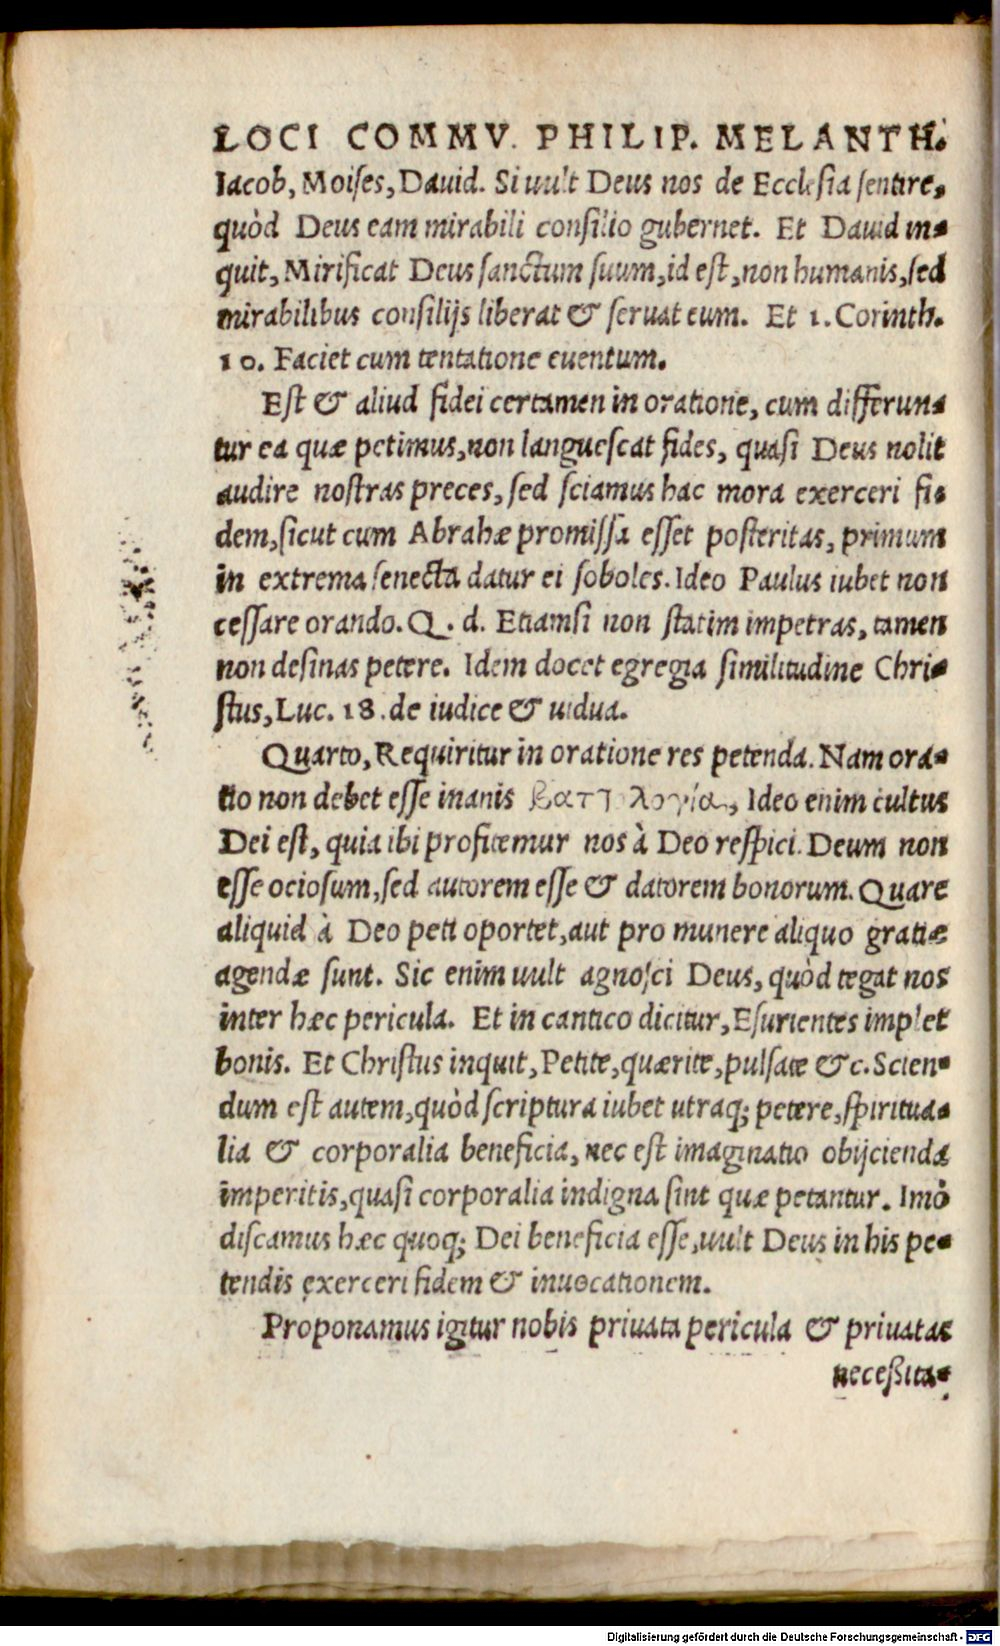 LOCI COMMV. PHILIP. MELANTH.
Iacob, Moises, Dauid. Si uult Deus nos de Ecclesia sentire,
quòd Deus eam mirabili consilio gubernet. Et Dauid in-
quit, Mirificat Deus sanctum suum, id est, non humanis, sed
mirabilibus consilijs liberat & seruat eum. Et 1. Corinth.
10. Faciet cum tentatione euentum.
Est & aliud fidei certamen in oratione, cum differun-
tur ea quæ petimus, non languescat fides, quasi Deus nolit
audire nostras preces, sed sciamus hac mora exerceri fi-
dem, sicut cum Abrahæ promissa esset posteritas, primum
in extrema senecta datur ei soboles. Ideo Paulus iubet non
cessare orando. Q. d. Etiamsi non statim impetras, tamen
non desinas petere. Idem docet egregia similitudine Chri-
stus, Luc. 18. de iudice & uidua.
Quarto, Requiritur in oratione res petenda. Nam ora-
tio non debet esse inanis βαττολογία, Ideo enim cultus
Dei est, quia ibi profitemur nos à Deo respici. Deum non
esse ociosum, sed autorem esse & datorem bonorum. Quare
aliquid à Deo peti oportet, aut pro munere aliquo gratiæ
agendæ sunt. Sic enim uult agnosci Deus, quòd tegat nos
inter hæc pericula. Et in cantico dicitur, Esurientes implet
bonis. Et Christus inquit, Petite, quærite, pulsate &c. Scien-
dum est autem, quòd scriptura iubet utraq; petere, spiritua-
lia & corporalia beneficia, nec est imaginatio obijcienda
imperitis, quasi corporalia indigna sint quæ petantur. Imò
discamus hæc quoq; Dei beneficia esse, uult Deus in his pe-
tendis exerceri fidem & inuocationem.
Proponamus igitur nobis priuata pericula & priuatas
neceßita-
Digitalisierung gefördert durch die Deutsche Forschungsgemeinschaft - DFG